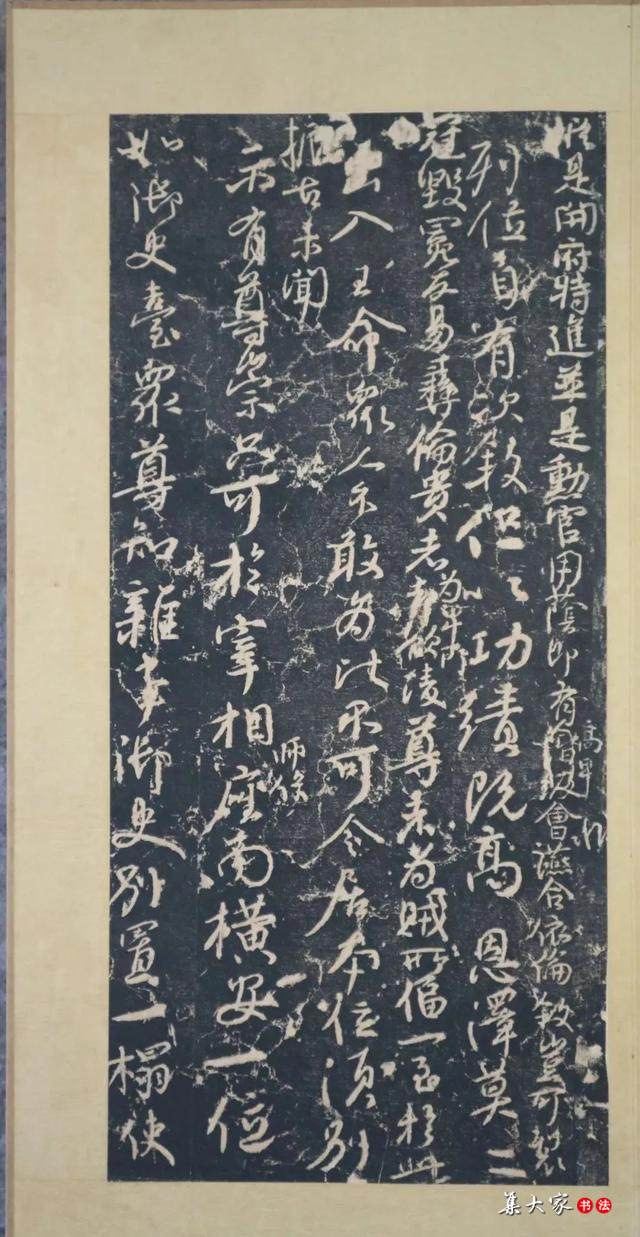 雖是開府特進並是勳官用蔭即有高卑會讌合依倫敘豈可裂
冠毀冕反易彝倫貴者為卑所凌尊者為賊所偪一至於此
振古未聞
列位自有次敘但以功績既高恩澤莫二
出入王命眾人不敢為此不可令居本位須別
示有尊崇只可於宰相師保座南橫安一位
如御史臺眾尊知雜事御史別置一榻使
集大家书法